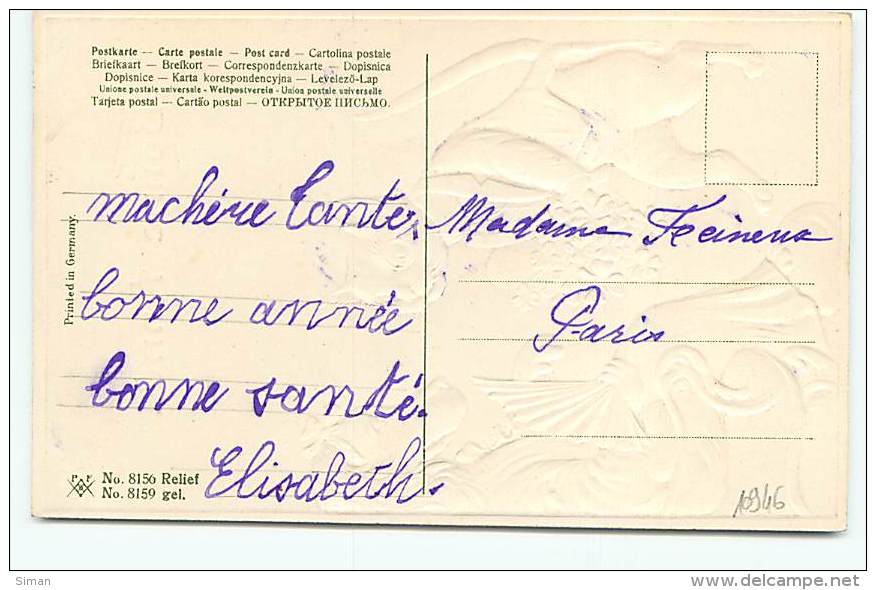 Postkarte — Carte postale — Post card — Cartolina postale
Briefkaart — Brefkort — Correspondenzkarte — Dopisnica
Dopisnice — Karta korespondencyjna — Levelező-Lap
Unione postale universale - Weltpostverein - Union postale universelle
Tarjeta postal — Cartão postal — ОТКРЫТОЕ ПИСЬМО.
Printed in Germany.
machére Tante,
bonne année
bonne santé.
Elisabeth.
Madame
Paris
P F B
No. 8156 Relief
No. 8159 gel.
10946
Siman
delcampe.net